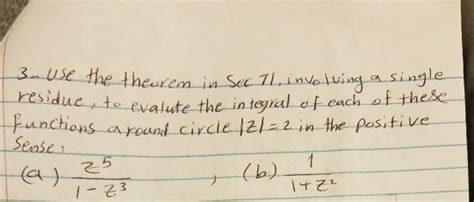 3- Use the theorem in Sec 71, involving a single
residue, to evalute the integral of each of these
functions around circle |z|=2 in the positive
sense:
(a) z^5/(1-z^3) , (b) 1/(1+z^2)